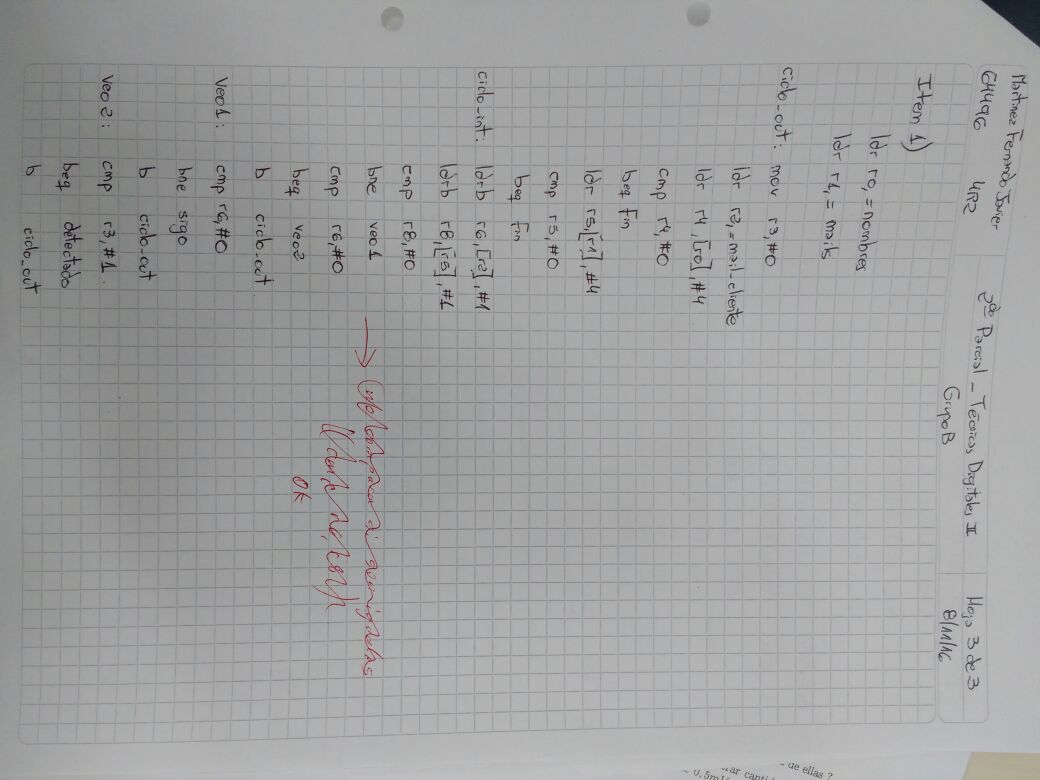 Martinez Fernando Javier
64496 4R2
2do Parcial - Técnicas Digitales II
Grupo B
Hoja 3 de 3
8/11/16
Item 1)
ldr r0,=nombres
ldr r1,=mails
ciclo_out: mov r3,#0
ldr r2,=mail_cliente
ldr r4,[r0],#4
cmp r4,#0
beq fin
ldr r5,[r1],#4
cmp r5,#0
beq fin
ciclo_int: ldrb r6,[r2],#1
ldrb r8,[r5],#1
cmp r8,#0
bne veo1
cmp r6,#0
beq veo2
b ciclo_out
OK
veo1: cmp r6,#0
bne sigo
b ciclo_out
veo2: cmp r3,#1.
beq detectado
b ciclo_out
de ellas ?